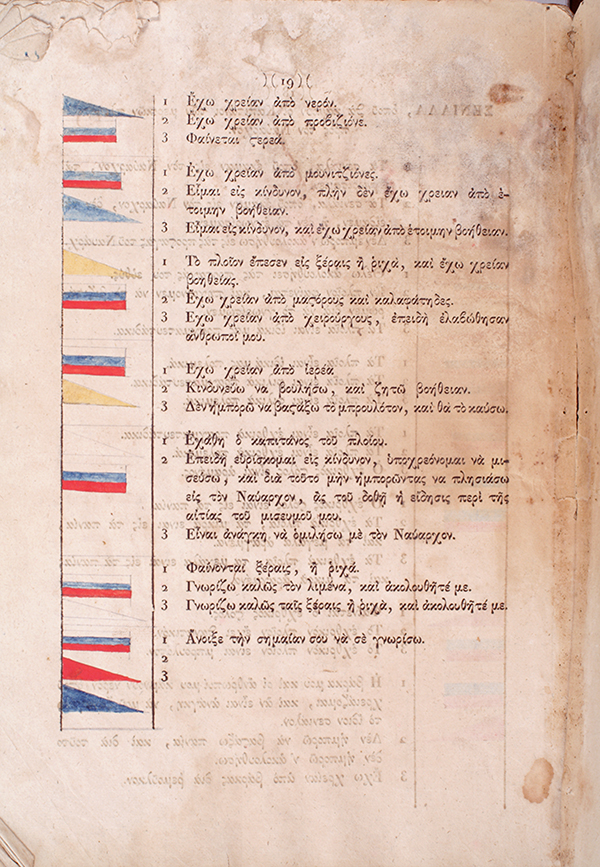 )( 19 )(
1 Ἔχω χρείαν ἀπὸ νερόν.
2 Ἔχω χρείαν ἀπὸ προβιζιόνε.
3 Φαίνεται ϛερεά.
1 Ἔχω χρείαν ἀπὸ μουνιτζιόνες.
2 Εἶμαι εἰς κίνδυνον, πλὴν δὲν ἔχω χρείαν ἀπὸ ἑ-
τοιμην βοήθειαν.
3 Εἶμαι εἰς κίνδυνον, καὶ ἔχω χρείαν ἀπὸ ἕτοιμην βοήθειαν.
1 Τὸ πλοῖον ἔπεσεν εἰς ξέραις ἢ ῥιχὰ, καὶ ἔχω χρείαν
βοηθείας.
2 Ἔχω χρείαν ἀπὸ ματόρους καὶ καλαφάτηδες.
3 Ἔχω χρείαν ἀπὸ χειρούργους, ἐπειδὴ ἐλαβώθησαν
ἄνθρωποί μου.
1 Ἔχω χρείαν ἀπὸ ἱερέα
2 Κινδυνεύω νὰ βουλήσω, καὶ ζητῶ βοήθειαν.
3 Δὲν ἠμπορῶ νὰ βαϛάξω τὸ μπρουλότον, καὶ θὰ τὸ καύσω.
1 Ἐχάθη ὁ καπιτάνος τοῦ πλοίου.
2 Ἐπειδὴ εὑρίσκομαι εἰς κίνδυνον, ὑποχρεόνομαι νὰ μι-
σεύσω, καὶ διὰ τοῦτο μὴν ἠμπορῶντας νὰ πλησιάσω
εἰς τὸν Ναύαρχον, ἂς τοῦ δοθῇ ἡ εἴδησις περὶ τῆς
αἰτίας τοῦ μισευμοῦ μου.
3 Εἶναι ἀνάγκη νὰ ὁμιλήσω μὲ τὸν Ναύαρχον.
1 Φαίνονται ξέραις, ἢ ῥιχά.
2 Γνωρίζω καλῶς τὸν λιμένα, καὶ ἀκολουθῆτέ με.
3 Γνωρίζω καλῶς ταῖς ξέραις ἢ ῥιχὰ, καὶ ἀκολουθῆτέ με.
1 Ἄνοιξε τὴν σημαίαν σου νὰ σὲ γνωρίσω.
2
3